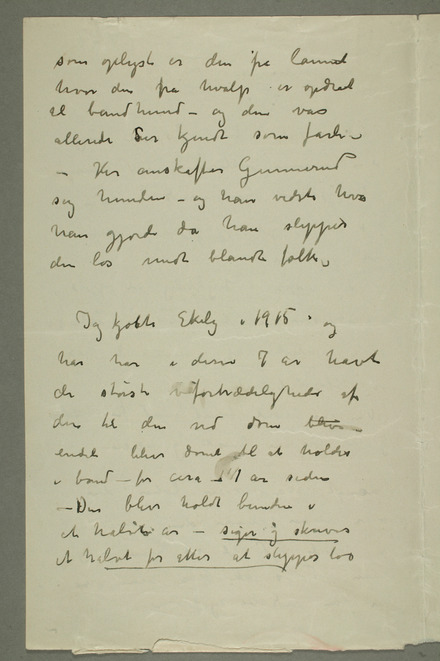 som oplyst er den fra landet
hvor den fra hvalp er opdrat
til bandhund – og den var
allerede der kjendt som farlig
– Her anskaffer Gunnerud
sig hunden – og han vidste hva
han gjorde da han slipper
den løs midt blandt folk.
Jeg kjøbte Ekely i 1915 og
har har i disse 7 år havt
de største fortrædeligheder af
den til den ved dom blev
endeli blev dømt til at holdes
i bånd – for cira 1 år siden
– Den blev holdt bunden i
et halvt år – siger og skriver
et halvt for atter at slippes løs